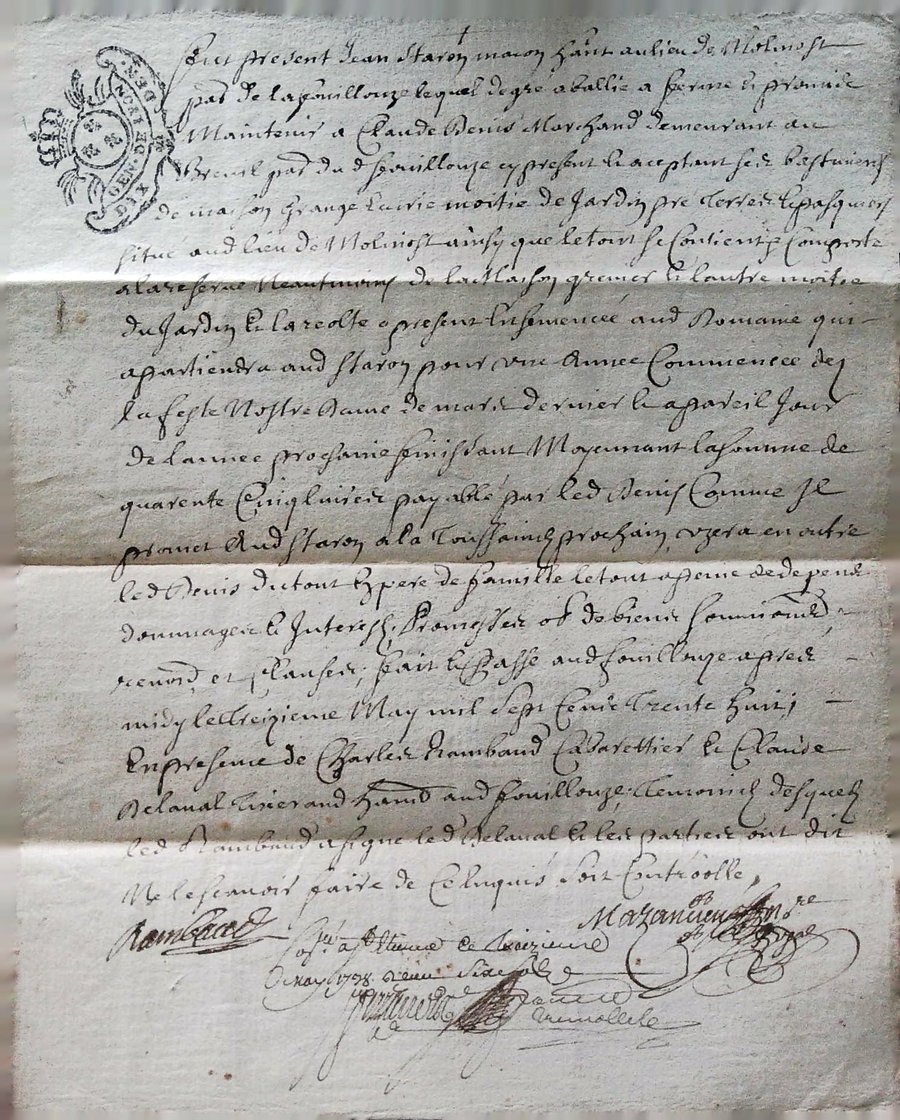 GEN. DE
DIX
Fut present Jean Staron macon hant au lieu de Molinost
par de lafouillouze lequel de gre a ballie a ferme et promide
Maintenir a Claude Denis Marchand demeurant au
Breuil par dud fouillouze cy present et aceptant ses bastiments
de maison grange Ecurie moitie de Jardin pre Terres et pasquiers
situé aud lieu de Molinost ainsy que le tout se Contient et Comporte
a la reserve Neantmoins de la Maison grenier et lautre moitie
du Jardin et la reolte a present Ensemencée aud Domaine qui
apartiendra aud Staron pour une Année Commencée dez
la feste Nostre Dame de mars dernier et a pareil Jour
de lannee prochaine finissant Moyennant la somme de
quarente Cinq livres payable par led Denis Comme Il
promet Aud Staron a la Toussainct prochain, uzera en outre
led Denis du tout En pere de famille le tout a peine de depens
dommages et Interest, Promesses ob de biens
renond, et Clauses, fait et Passé aud fouillouze apres
midy le Treizieme May mil Sept Cents Trente huit,
En presence de Charles Rambaud Cabarettier et Claude
Delaval Tisserand hand aud fouillouze, Temoins desquels
led Rambaud a signe led Delaval et les parties ont dit
Ne le scavoir faire de Ce Enquis Soit Controolle,
Rambaud
Estienne le
May 1738